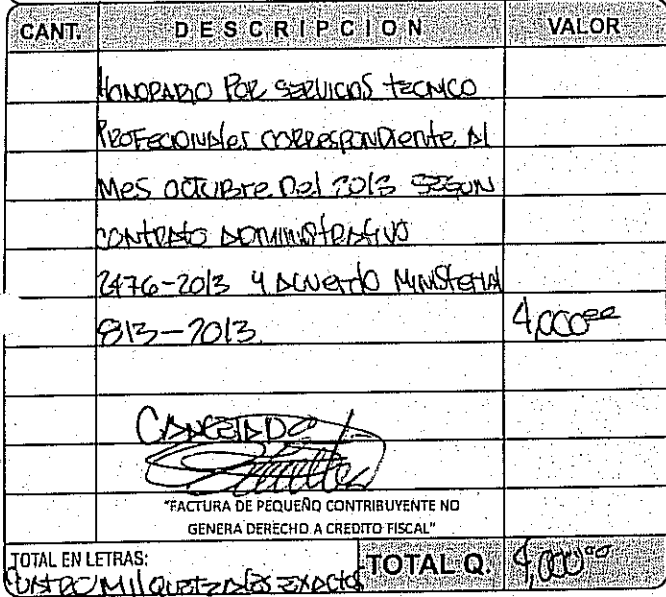 CANT. DESCRIPCION VALOR
HONORARIO POR SERVICIOS TECNICO
PROFECIONALES CORRESPONDIENTE AL
MES OCTUBRE DEL 2013 SEGUN
CONTRATO ADMINISTRATIVO
2476-2013 Y ACUERDO MINISTERIAL
813-2013. 4,000.00
CANCELADO
"FACTURA DE PEQUEÑO CONTRIBUYENTE NO
GENERA DERECHO A CREDITO FISCAL"
TOTAL EN LETRAS:
CUATRO MIL QUETZALES EXACTOS TOTAL Q. 4,000.00